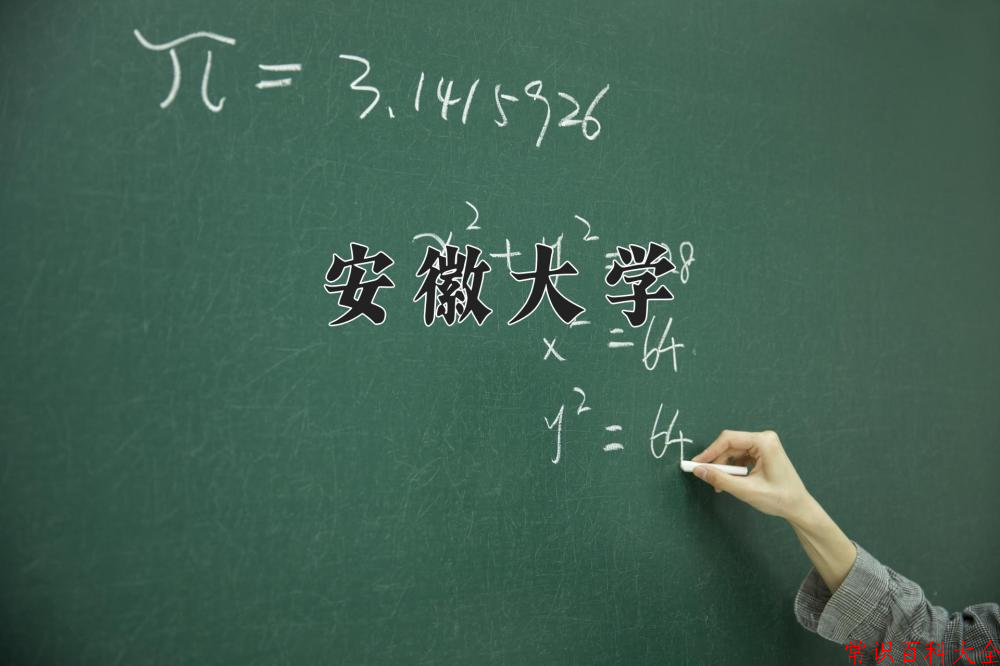 π = 3.1415926
x² + y² = 128
安徽大学
x² = 64
y² = 64
常识百科大全